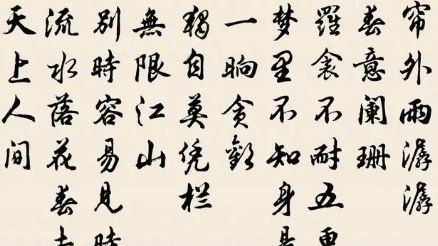 帘外雨潺潺
春意阑珊
羅衾不耐五更
梦里不知身是
一晌贪歡
獨自莫凭栏
無限江山
别時容易見時
流水落花春去
天上人间